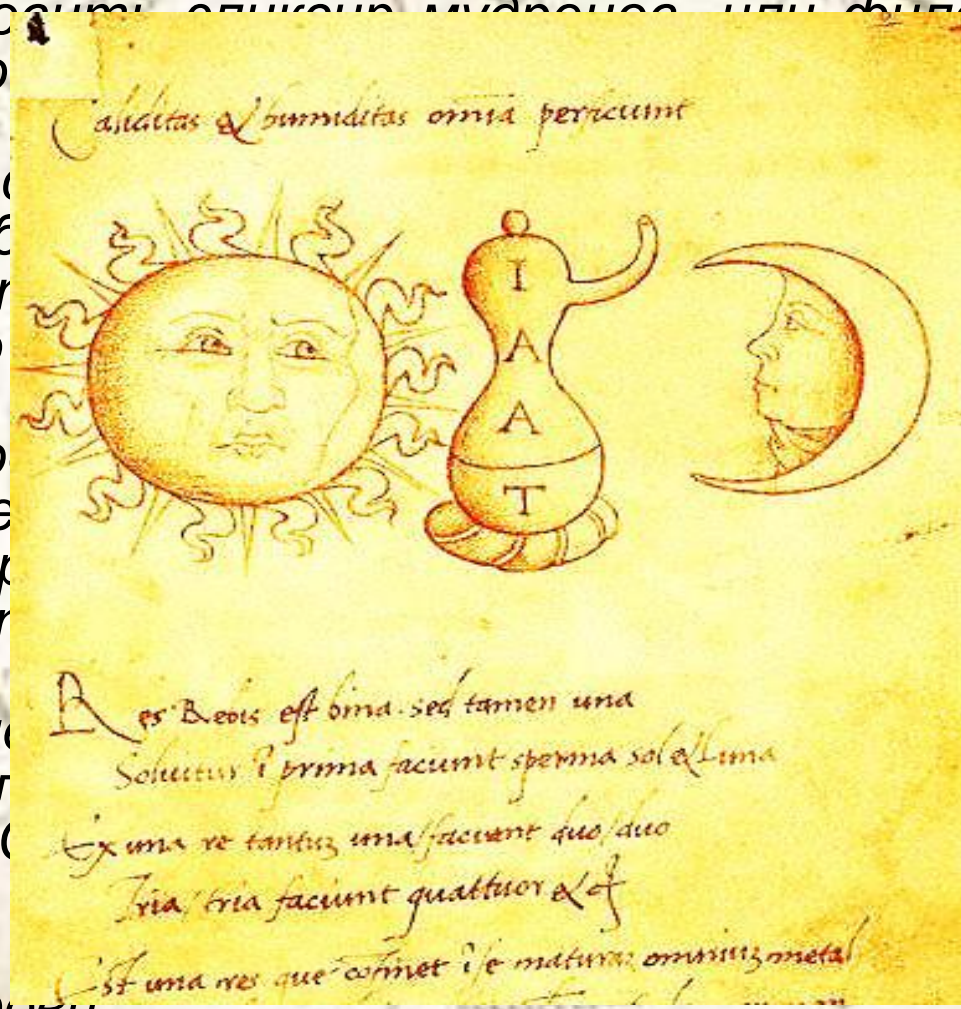 осить эликсир мудрецов, или фило
Caliditas & humiditas omnia perficiunt
I
A
A
T
Res Rebis est bina sed tamen una
Soluitur ĩ prima faciunt sperma sol & Luna
Ex una re tantuz una/faciant duo/duo
Tria/tria faciunt quattuor &
Est una res que cõtinet ĩ se omniuz metal